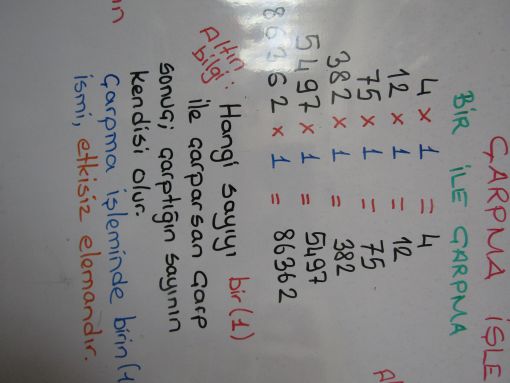 ÇARPMA İŞLE
BİR İLE ÇARPMA
4 x 1 = 4
12 x 1 = 12
75 x 1 = 75
382 x 1 = 382
5497 x 1 = 5497
86362 x 1 = 86362
Altın bilgi: Hangi sayıyı bir (1)
ile çarparsan çarp
sonuç; çarptığın sayının
kendisi olur.
Çarpma işleminde birin (1
ismi, etkisiz elemandır.